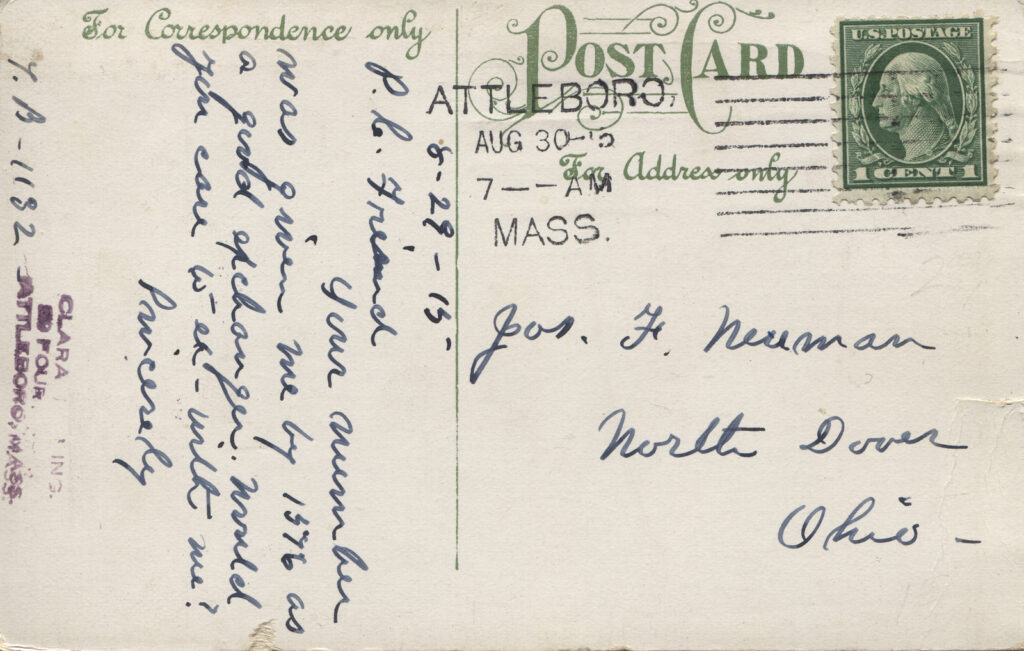 For Correspondence only
POST CARD
For Address only
U.S. POSTAGE
1 CENT 1
ATTLEBORO,
AUG 30
7 — AM
MASS.
8-29-15-
P. C. Friend
Your number
was given me by 1576 as
a good exchanger. Would
you care to ex- with me?
Sincerely
Y. B - 1182
CLARA
FOUR
ATTLEBORO, MASS.
Jos. F. Neuman
North Dover
Ohio -